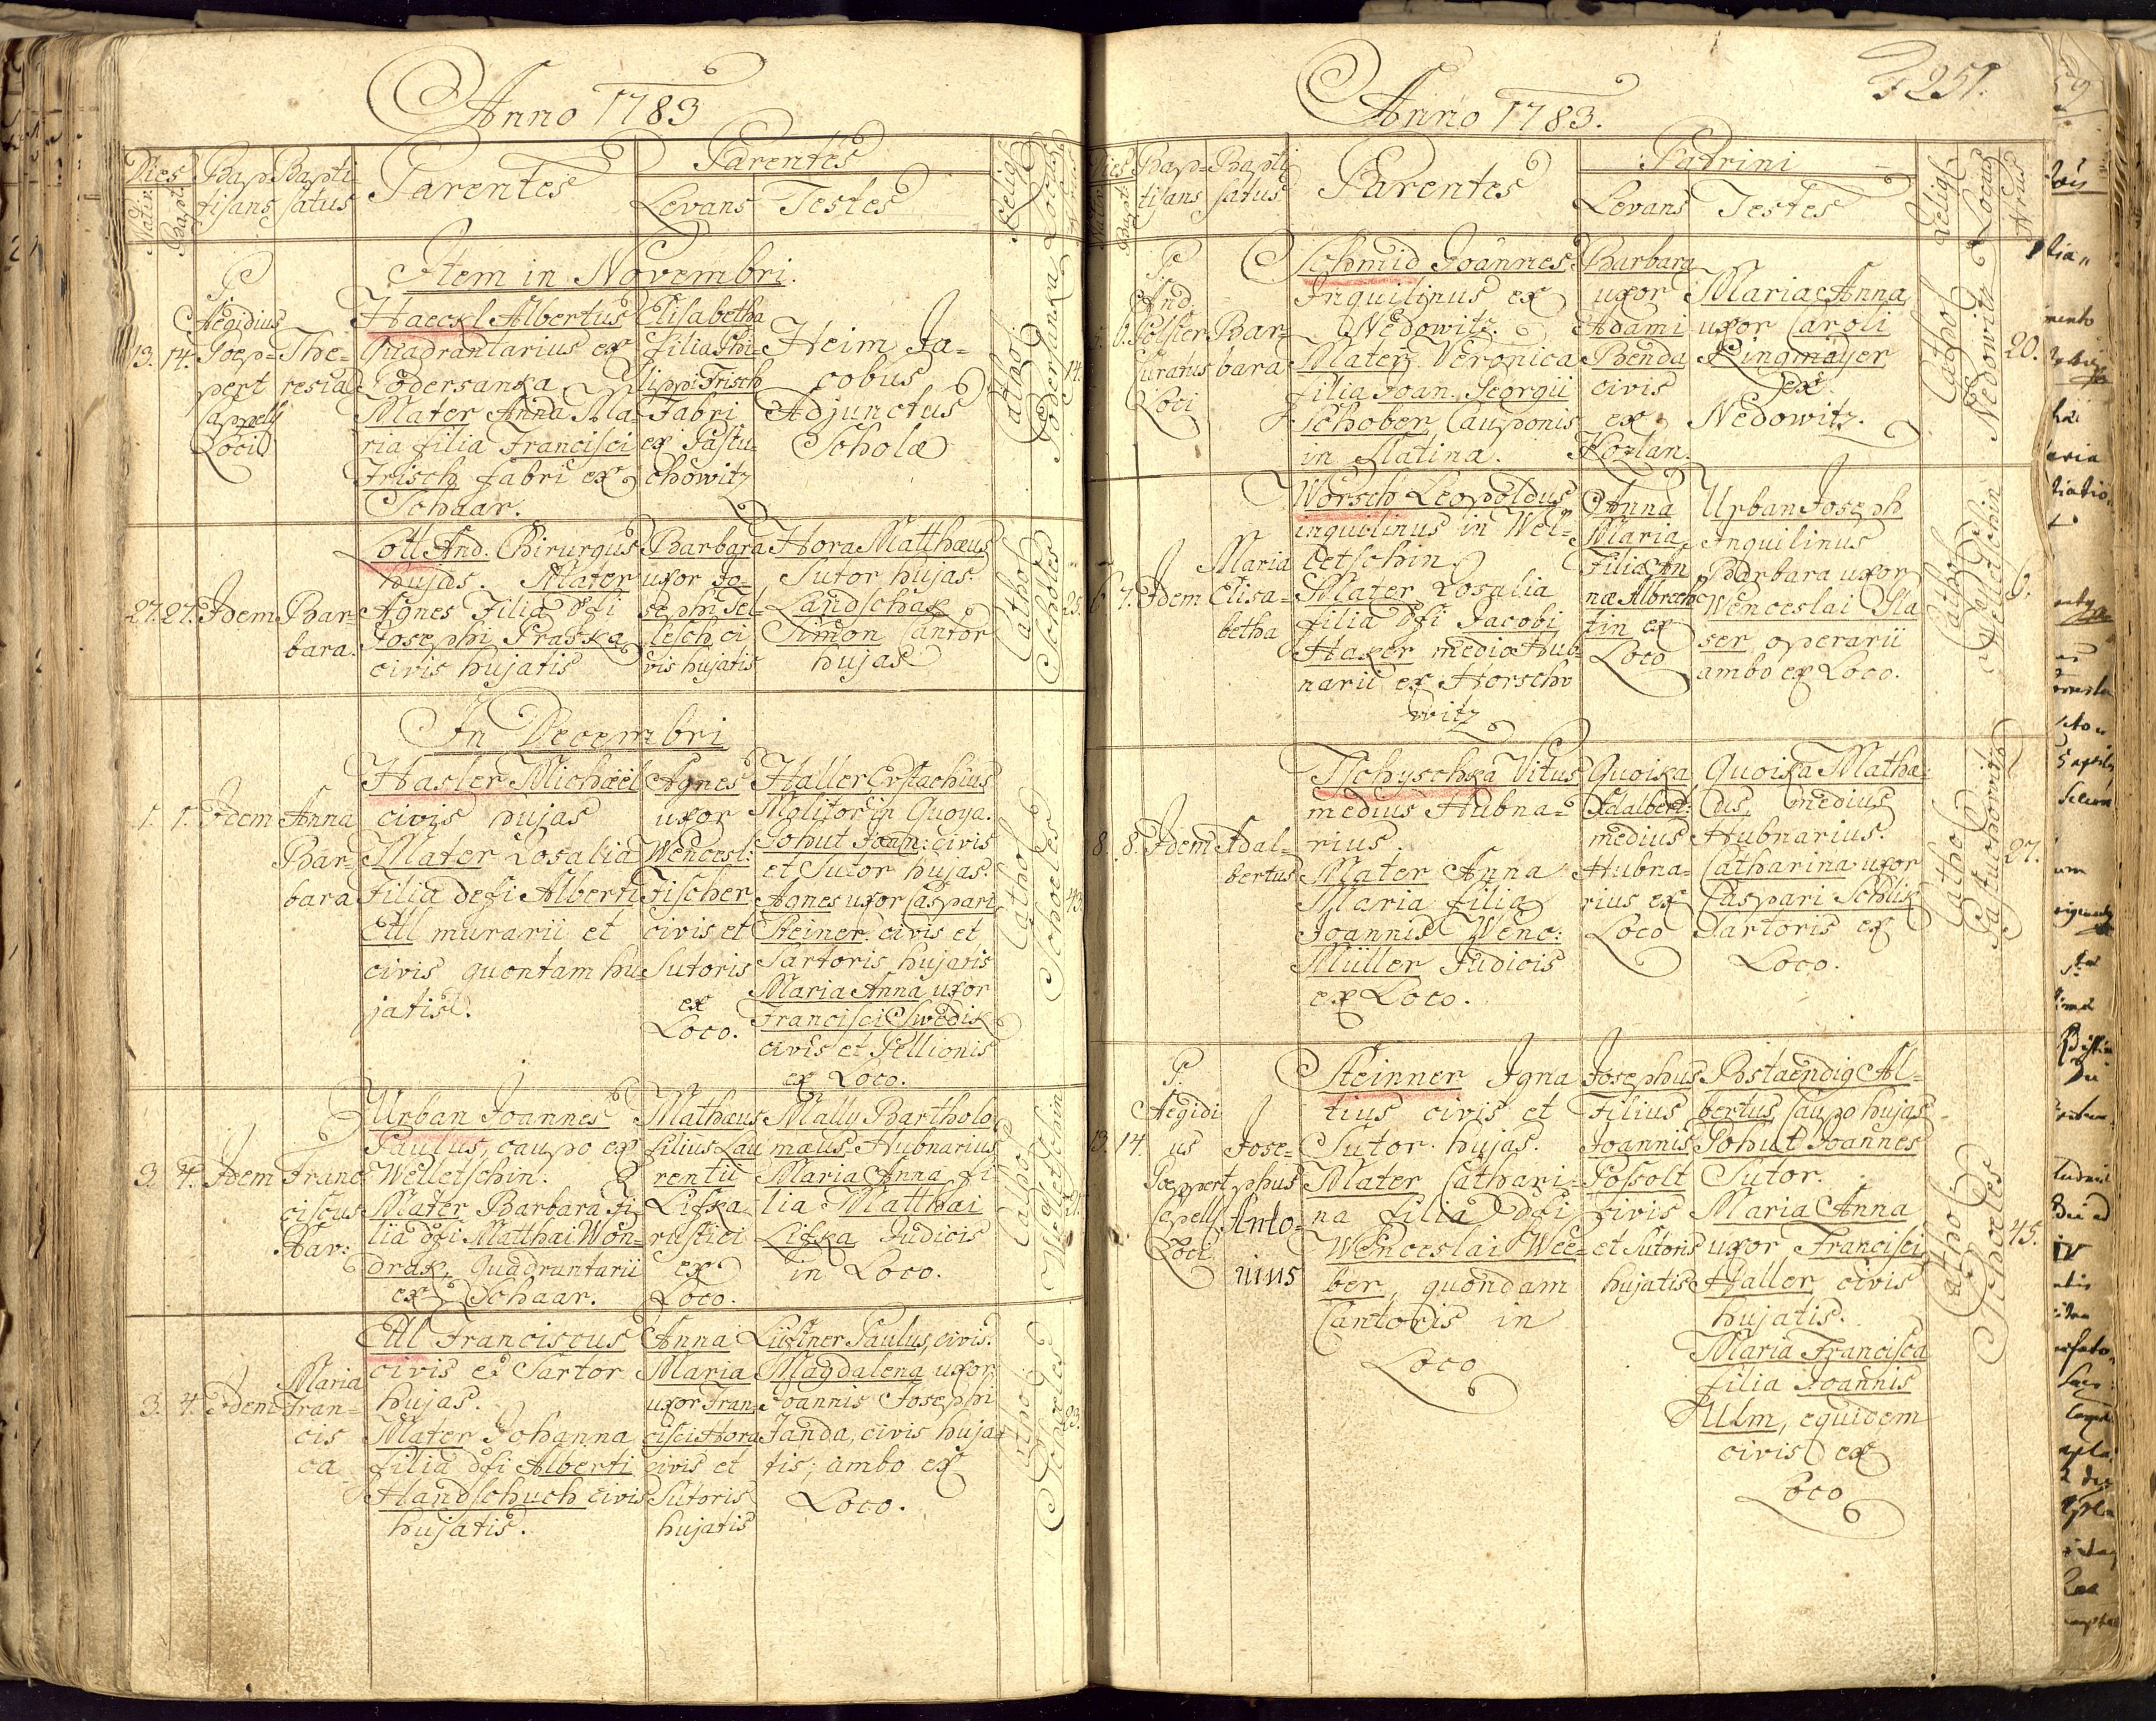 Anno 1783
Dies
Natiu
Bapt
Bap
tisans
Bapti
satus
Parentes
Parentes
Levans
Testes
Relig
Locus
Item in Novembri.
13. 14.
P
Aegidius
Poep=
pert
Cappell
Loci
The=
resia
Haeckl Albertus
Quadrantarius ex
Podersanka
Mater Anna Ma=
ria filia Francisci
Frisch fabri ex
Schaar.
Elisabetha
filia Phi=
lippi Frisch
Fabri
ex Pastu=
chowitz
Heim Ja=
cobus
Adjunctus
Scholæ
Cathol.
Podersanka
14.
27. 27. Idem
Bar=
bara.
Lott And. Chirurgus
hujas. Mater
Agnes Filia dfi
Josephi Praska
civis hujatis
Barbara
uxor Jo=
sephi Sel=
lesch ci
vis hujatis
Hora Matthæus
Sutor hujas.
Landschak
Simon Cantor
hujas
Cathol
Scholes
25.
In Decembri
1. 1. Idem
Anna
Bar=
bara
Hasler Michäel
civis hujas
Mater Rosalia
filia defi Alberti
Ettl murarii et
civis quontam hu
jatis.
Agnes
uxor
Wencesl:
Fischer
civis et
Sutoris
ex
Loco.
Haller Evstachius
Molitor in Quoya.
Pohut Joan: civis
et Sutor hujas.
Agnes uxor Caspari
Steiner civis et
Sartoris hujatis
Maria Anna uxor
Francisci Swedik
civis et Pellionis
ex Loco.
Cathol
Schoeles
43.
3. 4. Idem
Franc
ciscus
Xav:
Urban Joannes
Paulus, caupo ex
Welletschin.
Mater Barbara fi
lia dfi Matthæi Won=
drak, Quadrantarii
ex Schaar.
Mathæus
filius Lau
rentii
Lifka
rustici
ex
Loco.
Mally Bartholo
mæus Hubnarius
Maria Anna fi=
lia Matthæi
Lifka Judicis
in Loco.
Cathol
Welletschin
31.
3. 4. Idem
Maria
Fran=
cis
ca
Ettl Franciscus
civis et Sartor
hujas.
Mater Johanna
filia dfi Alberti
Handschuch civis
hujatis.
Anna
Maria
uxor Fran=
cisci Hora
civis et
Sutoris
hujatis
Lüftner Paulus, civis.
Magdalena uxor
Joannis Josephi
Janda, civis huja=
tis; ambo ex
Loco.
Cathol
Schoeles
23.
Anno 1783.
251.
Dies
Natiu
Bapt
Bap=
tisans
Bapti
satus
Parentes
Patrini
Levans
Testes
Relig
Locus
Nrus
5. 6.
P.
And.
Pelster
Curatus
Loci
Bar=
bara
Schmid Joannes
Inquilinus ex
Nedowitz.
Mater Veronica
filia Joan. Georgii
Schober Cauponis
in Flatina.
Barbara
uxor
Adami
Benda
civis
ex
Kozlan.
Maria Anna
uxor Caroli
Ringmayer
ex
Nedowitz.
Cathol
Nedowitz
20.
6. 7. Idem
Maria
Elisa=
betha
Worsch Leopoldus
inquilinus in Wel=
letschin
Mater Rosalia
filia dfi Jacobi
Haker medio Hub=
narii ex Horscho
witz
Anna
Maria
Filia An
næ Albrech
tin ex
Loco
Urban Joseph
Inquilinus
Barbara uxor
Wenceslai Sla
ser operarii
ambo ex Loco.
Cathol
Welletschin
6.
8. 8. Idem
Adal=
bertus
Tschyschka Vitus
medius Hubna=
rius.
Mater Anna
Maria filia
Joannis Wenc:
Müller Judicis
ex Loco.
Quoika
Adalbert:
medius
Hubna=
rius ex
Loco
Quoika Mathæ=
us, medius
Hubnarius.
Catharina uxor
Caspari Schlik
Sartoris ex
Loco.
Cathol
Pastuchowitz
27.
13. 14.
P.
Aegidi
us
Poeppert
Capell
Loci
Jose=
phus
Anto=
nius
Steinner Igna
tius civis et
Sutor hujas.
Mater Cathari=
na filia dfi
Wenceslai Wee=
ber, quondam
Cantoris in
Loco
Josephus
Filius
Joannis
Possolt
civis
et Sutoris
hujatis
Bstaendig Al=
bertus Caupo hujas
Pohut Joannes
Sutor.
Maria Anna
uxor Francisci
Haller civis
hujatis.
Maria Francisca
filia Joannis
Ullm, equidem
civis ex
Loco
Cathol
Schoeles
45.